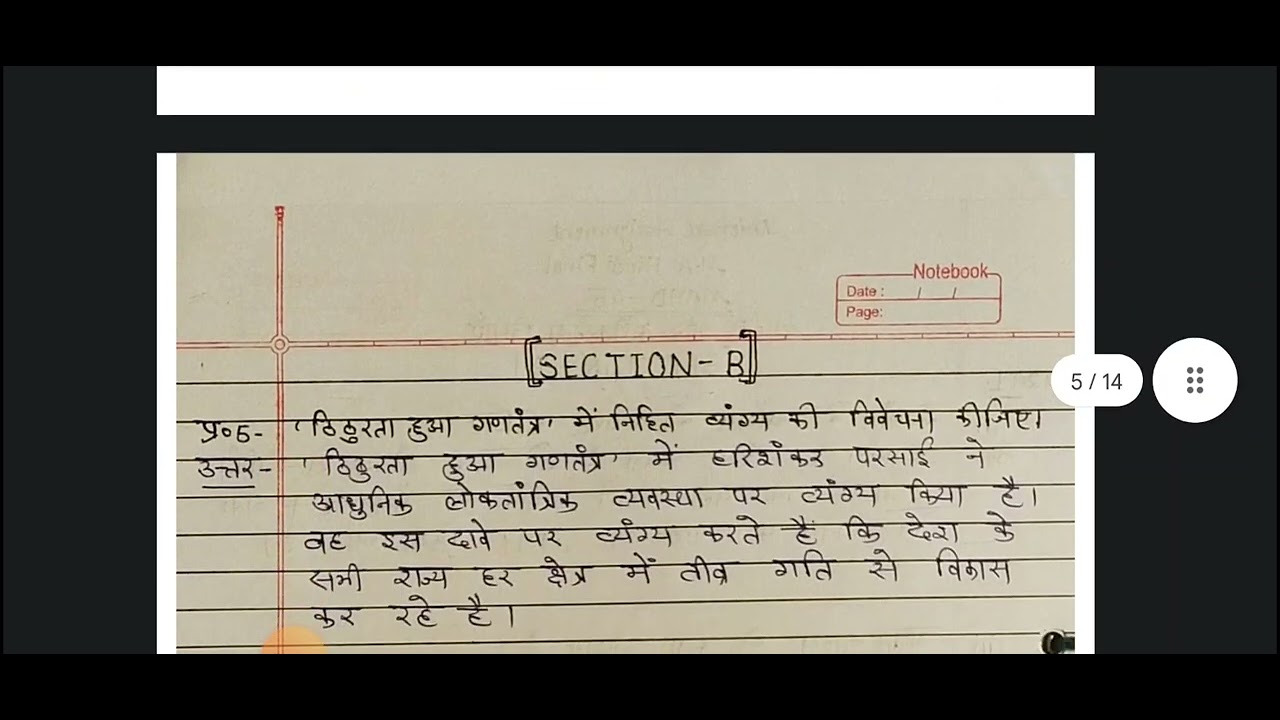 Notebook
Date : / /
Page:
[SECTION - B]
5 / 14
प्र०5- 'ठिठुरता हुआ गणतंत्र' में निहित व्यंग्य की विवेचना कीजिए।
उत्तर- 'ठिठुरता हुआ गणतंत्र' में हरिशंकर परसाई ने
आधुनिक लोकतांत्रिक व्यवस्था पर व्यंग्य किया है।
वह इस दावे पर व्यंग्य करते हैं कि देश के
सभी राज्य हर क्षेत्र में तीव्र गति से विकास
कर रहे है।